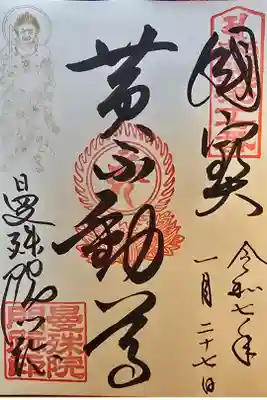 國寶
令和七年
一月二十七日
黄不動尊
曼殊院門跡
曼殊院